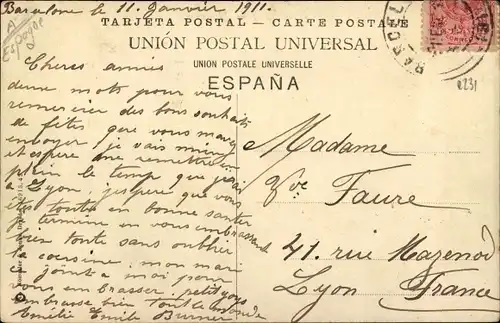 Barcelone le 11 janvier 1911.
TARJETA POSTAL - CARTE POSTALE
UNIÓN POSTAL UNIVERSAL
UNION POSTALE UNIVERSELLE
ESPAÑA
Espagne
BARCEL
0231
Cheres amies
deux mots pour vous
remercier des bons souhaits
de fêtes que vous m'avez
envoyer je vais mieux
et espere me remettre
plein le temp que j'irai
a Lyon, j'espere que vous
êtes toute en bonne santer
je termine en vous embrassant
bien toute sans oublier
la cousine mon mari
ce joint a moi pour
vous embrasser petit yoyo
embrasse bien tout le monde
Amélie Emile Burner
Madame
Vve Faure
41. rue Mazenod
Lyon France